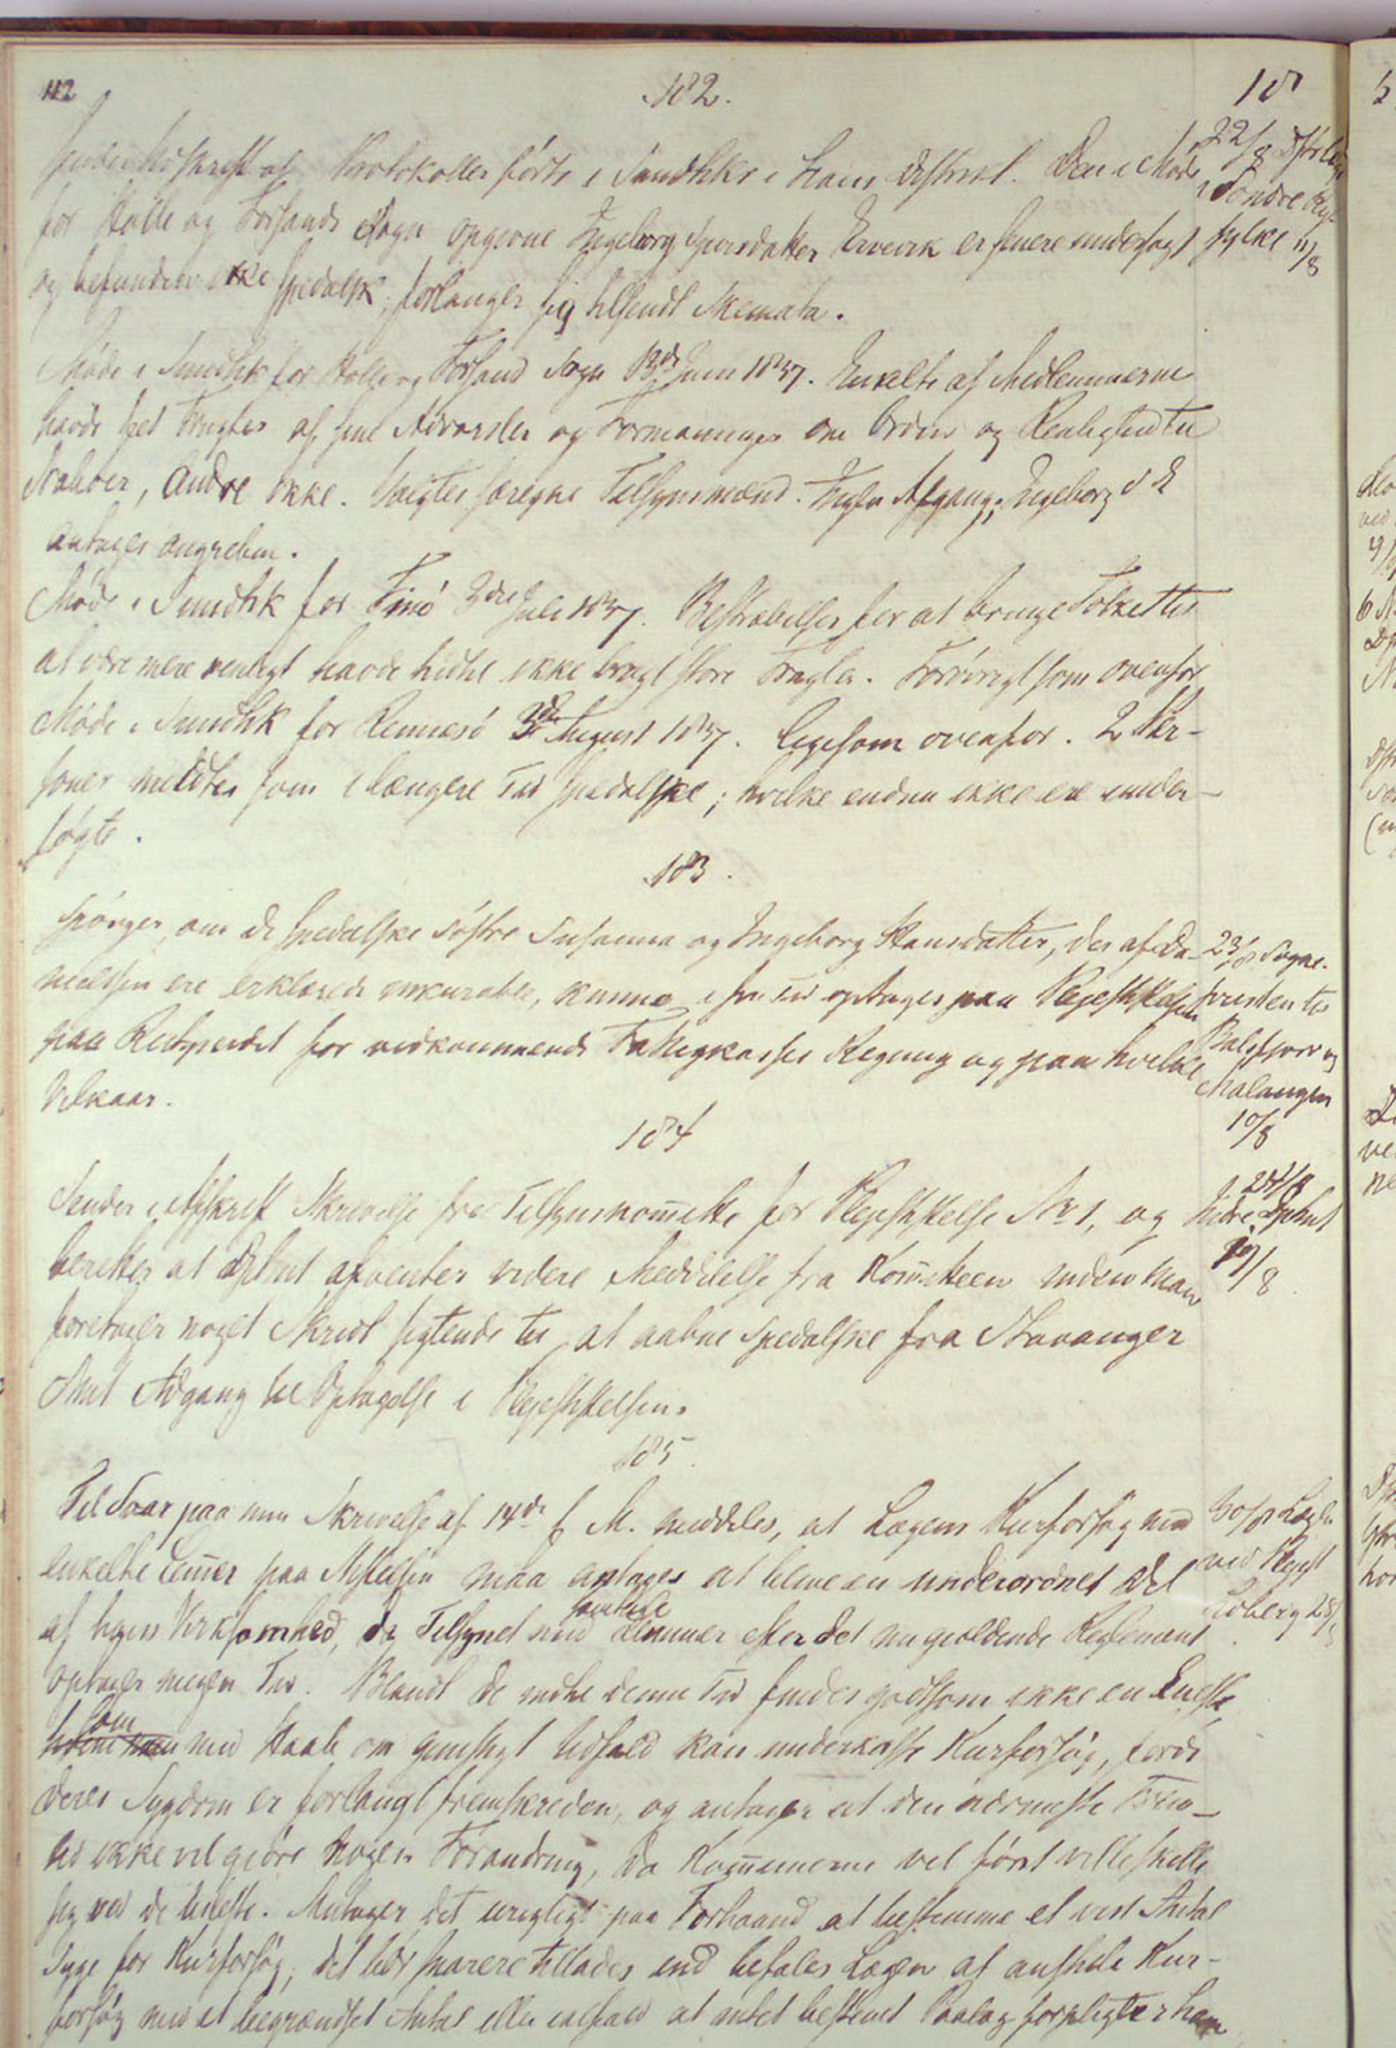 112
182.
18
Sender Udskrift af Protokoller førte i Sundhkr i hans Distrikt. Den i Møde
for Holle og Forsands Sogn opgivne Ingeborg Eivevik er senere undersøgt
og befunden ikke spedalsk; forlanger sig tilsendt Skemata.
22/8 Dstrlæge
i Søndre Ry-
fylke 11/8
Møde i Sundhk for Holle og Forsand Sogn 13de Juni 1857. Enkelte af Medlemmerne
havde seet Frugter af sine Advarsler og Formaninger om Orden og Renlighed til
Skabber, Andre ikke. Valgtes særegne Tilsynsmænd. Ingen Afgang; Ingeborg S E
antages angreben.
Møde i Sundhk for Finø 3die Juli 1857. Bestræbelser for at bringe Folket til
at være mere renligt havde hidtil ikke bragt store Frugter. Forøvrigt som ovenfor
Møde i Sundhk for Rennesø 3die August 1857. Ligesom ovenfor. 2 Per-
soner meldtes som i længere Tid spedalske; hvilke endnu ikke ere under-
søgte.
183.
Spørger, om de spedalske Søstre Susanna og Ingeborg Hansdatter, der af Da-
nielssen ere erklærede inkurable, kunne i sin Tid optages paa Plejestiftelsen
paa Reitgjerdet for vedkommende Fattigkasses Regning og paa hvilke
Vilkaar.
23/8 Sogne-
præsten til
Balsfjord og
Malangen
10/8
184
Sender i Afskrift Skrivelse fra Tilsynskom̅itte for Plejestiftelse No 1, og
beretter at Dpmt afventer videre Meddelelse fra Kom̅iteen inden man
foretager noget Skridt sigtende til at aabne spedalske fra Stavanger
Amt Adgang til Optagelse i Plejestiftelsen.
24/8
Indre Dpmt
19/8
185
Til Svar paa min Skrivelse af 14de f M. meddeles, at Lægens Kurforsøg med
enkelte Lem̅er paa Stiftelsen maa antages at blive en underordnet Del
af hans Virksomhed, da Tilsynet med samtlige Lemmer efter det nugjældende Reglement
optager megen Tid. Blandt de indtil denne Tid findes godtsom ikke en Eneste
som med Haab om gunstigt Udfald kan underkaste Kurforsøg, fordi
deres Sygdom er forlangt fremskreden, og antager at den nærmeste Frem-
tid ikke vil gjøre nogen Forandring, da Kom̅unerne vel først ville skille
sig ved de usleste. Antager det urigtigt paa Forhaand at bestemme et vist Antal
Syge for Kurforsøg; det bør snarere tillades end befales Lægen at anstille Kur-
forsøg med et begrændset Antal eller ialfald at intet bestemt Paalæg forpligter ham
30/8 Læge
ved Plejest
Lidberg 28/8